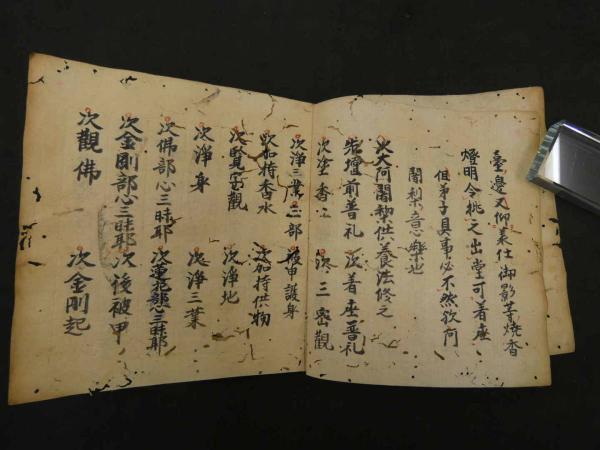 臺邊又仰義仕御影等燒香
燈明令挑之出堂可着座
一 但弟子具事必不然歟阿
闍梨意樂也
次大阿闍梨供養法修之
若壇前普礼 次着座普礼
次塗香 次三密觀
次淨三業三部 被甲護身
次加持香水 次加持供物
次覽字觀 次淨地
次淨身 次淨三業
次佛部心三昧耶 次蓮花部心三昧耶
次金剛部心三昧耶 次後被甲
次觀佛 次金剛起